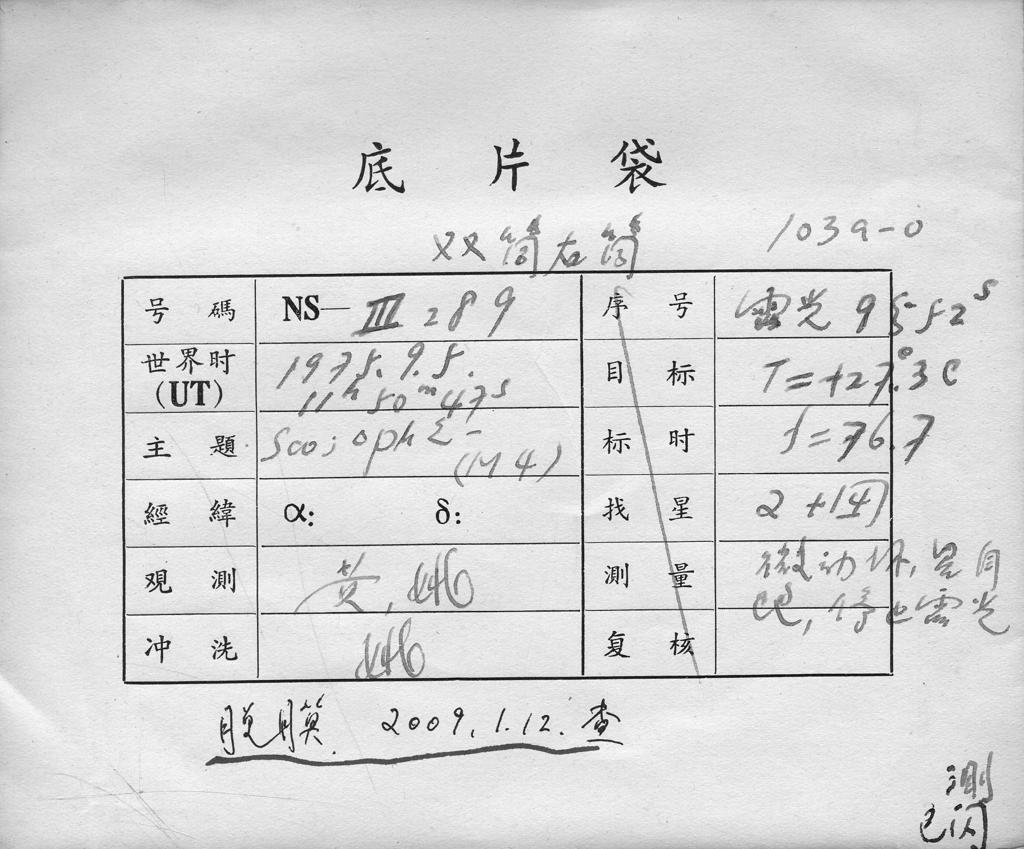 底片袋
双筒右筒 103a-0
号碼 NS— III 289 序号 露光 9 52s
世界时 (UT) 1975.9.5. 11h50m47s 目标 T=+27°.3C
主題 Sco; oph Σ- (M4) 标时 f=76.7
經緯 α: δ: 找星 2 +14
观測 黄, 测量 微动坏, 星自
冲洗 复核 停止露光
脱膜 2009.1.12. 查
測
已闪